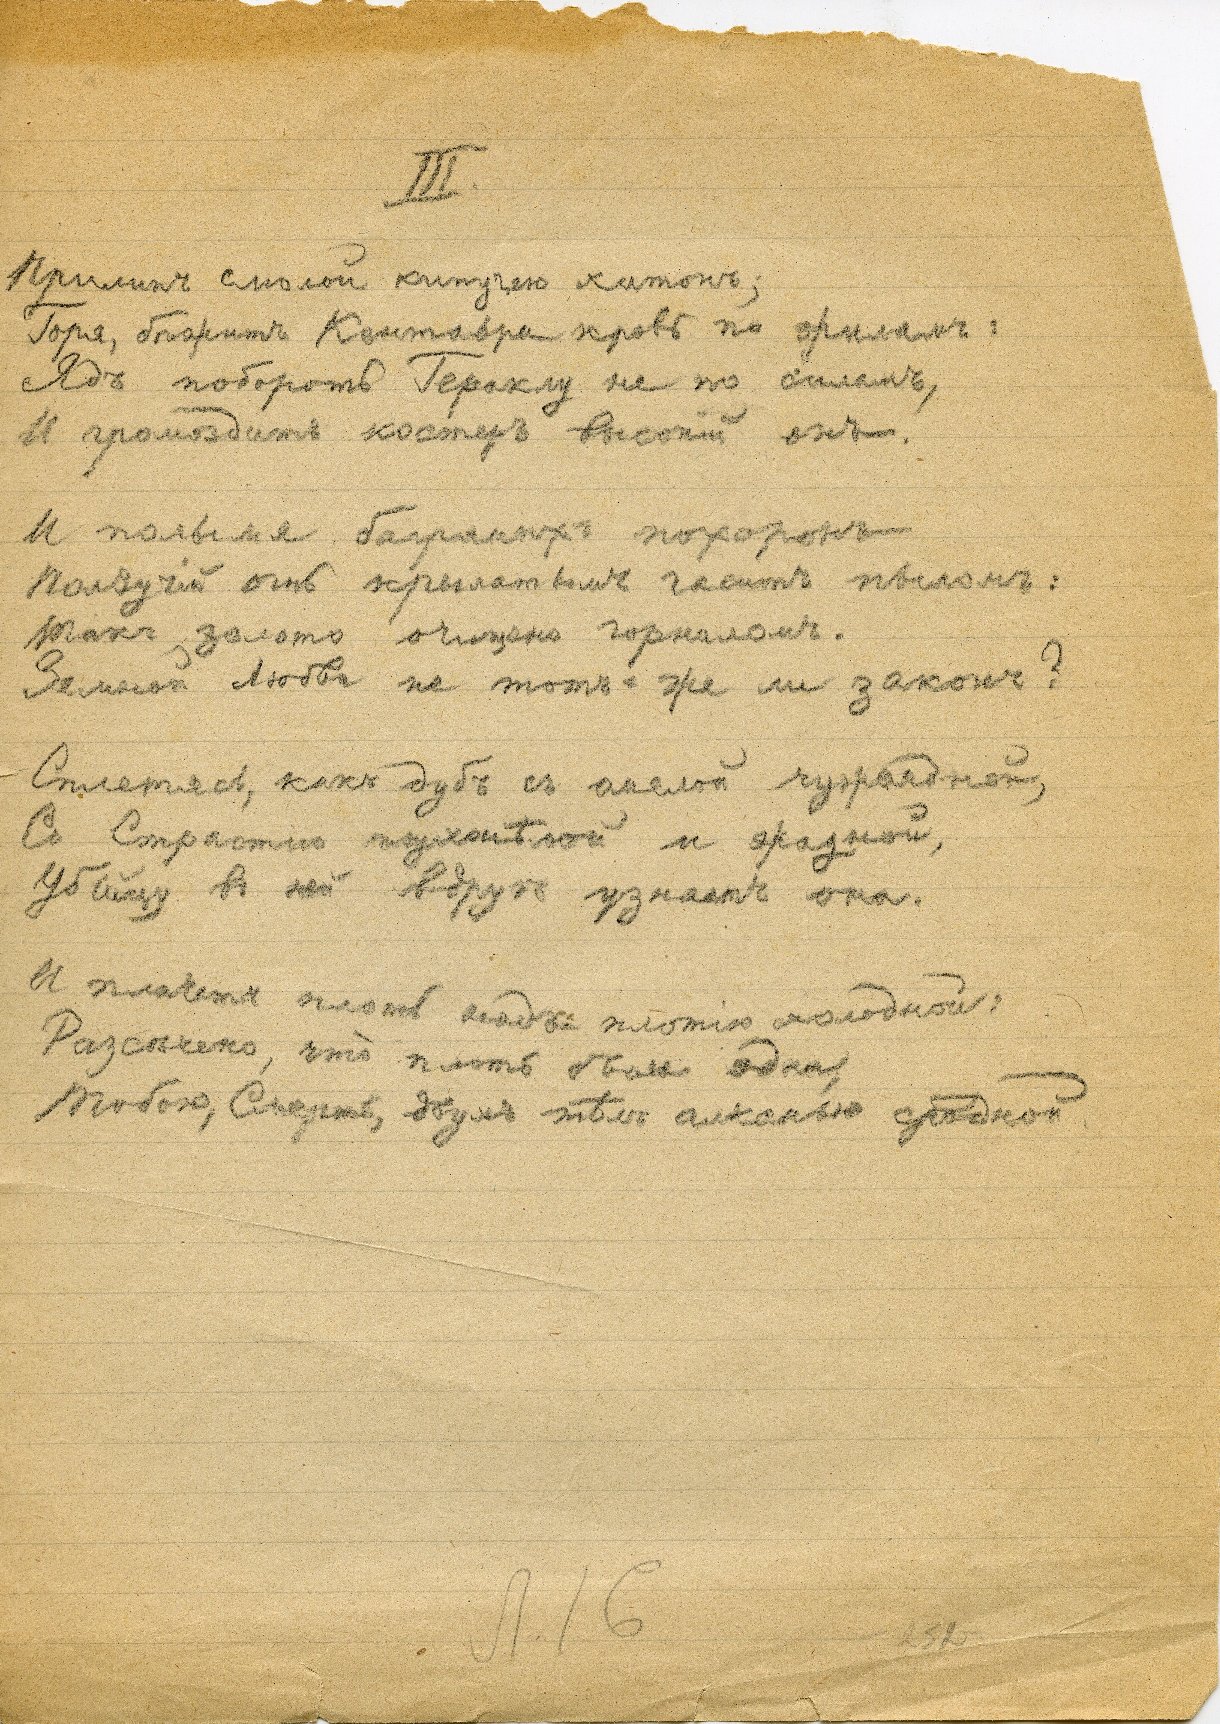 III.
Прилипъ смолой кипучею хитонъ;
Горя, бѣжитъ Кентавра кровь по жиламъ:
Ядъ побороть Гераклу не по силамъ,
И громоздитъ костеръ высокій онъ.
И полымя багряныхъ похоронъ
Ползучій огнь крылатымъ гаситъ пыломъ:
Такъ золото очищено горниломъ.
Земной Любви не тотъ-же ли законъ?
Сплетясь, какъ дубъ съ омелой чужеядной,
Со Страстью и жадной,
Убійцу въ ней вдругъ узнаетъ она.
И плачетъ плоть надъ плотію холодной:
Разсѣчено, что плоть была одна,
Тобою, Смерть, двухъ тѣлъ алканью сродной
Л. 16